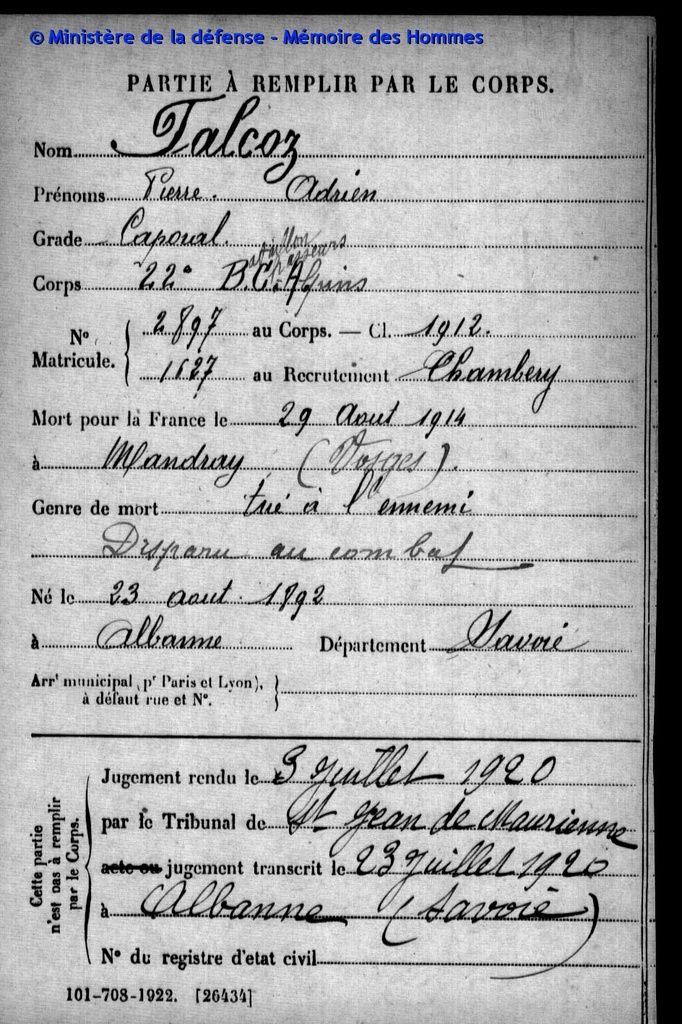 © Ministère de la défense - Mémoire des Hommes
PARTIE À REMPLIR PAR LE CORPS.
Nom Talcoz
Prénoms Pierre. Adrien
Grade Caporal.
Corps 22e B.C. Alpins
bataillon chasseurs
No Matricule. { 2897 au Corps. — Cl. 1912.
1627 au Recrutement Chambéry
Mort pour la France le 29 Aout 1914
à Mandray (Vosges).
Genre de mort tué à l'ennemi
Disparu au combat
Né le 23 aout 1892
à Albanne Département Savoie
Arrt municipal (pr Paris et Lyon), à défaut rue et No. }
Cette partie n'est pas à remplir par le Corps.
Jugement rendu le 3 Juillet 1920
par le Tribunal de St Jean de Maurienne
acte ou jugement transcrit le 23 Juillet 1920
à Albanne (Savoie)
No du registre d'etat civil
101-708-1922. [26434]